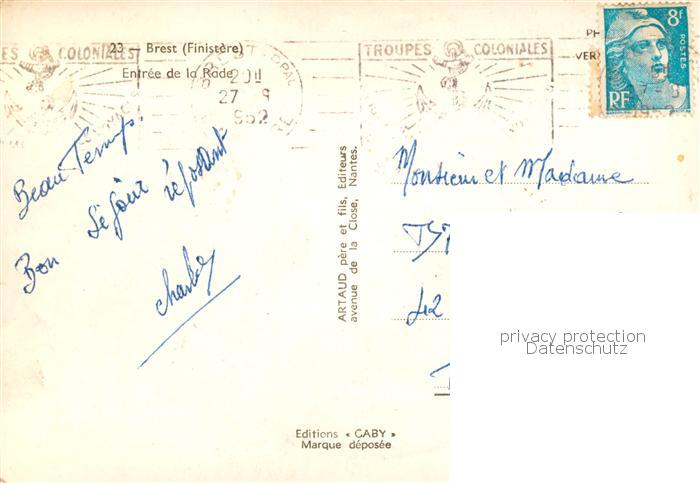 TROUPES COLONIALES
23 — Brest (Finistère)
Entrée de la Rade
20H
27 8
1952
TROUPES COLONIALES
8F
POSTES
RF
PH
VER
Beau Temps.
Bon séjour reposant
Charles
ARTAUD père et fils, Editeurs
avenue de la Close, Nantes.
Monsieur et Madame
42
privacy protection
Datenschutz
Editions « GABY »
Marque déposée